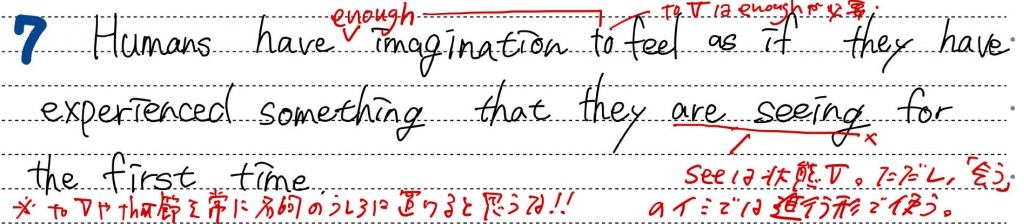 enough to Vはenoughが必要.
7 Humans have imagination to feel as if they have
experienced something that they are seeing for
the first time.
seeは状態V。ただし、「会う」
のイミでは進行形で使う。
※ to Vやthat節を常に名詞のうしろに置けると思うな!!